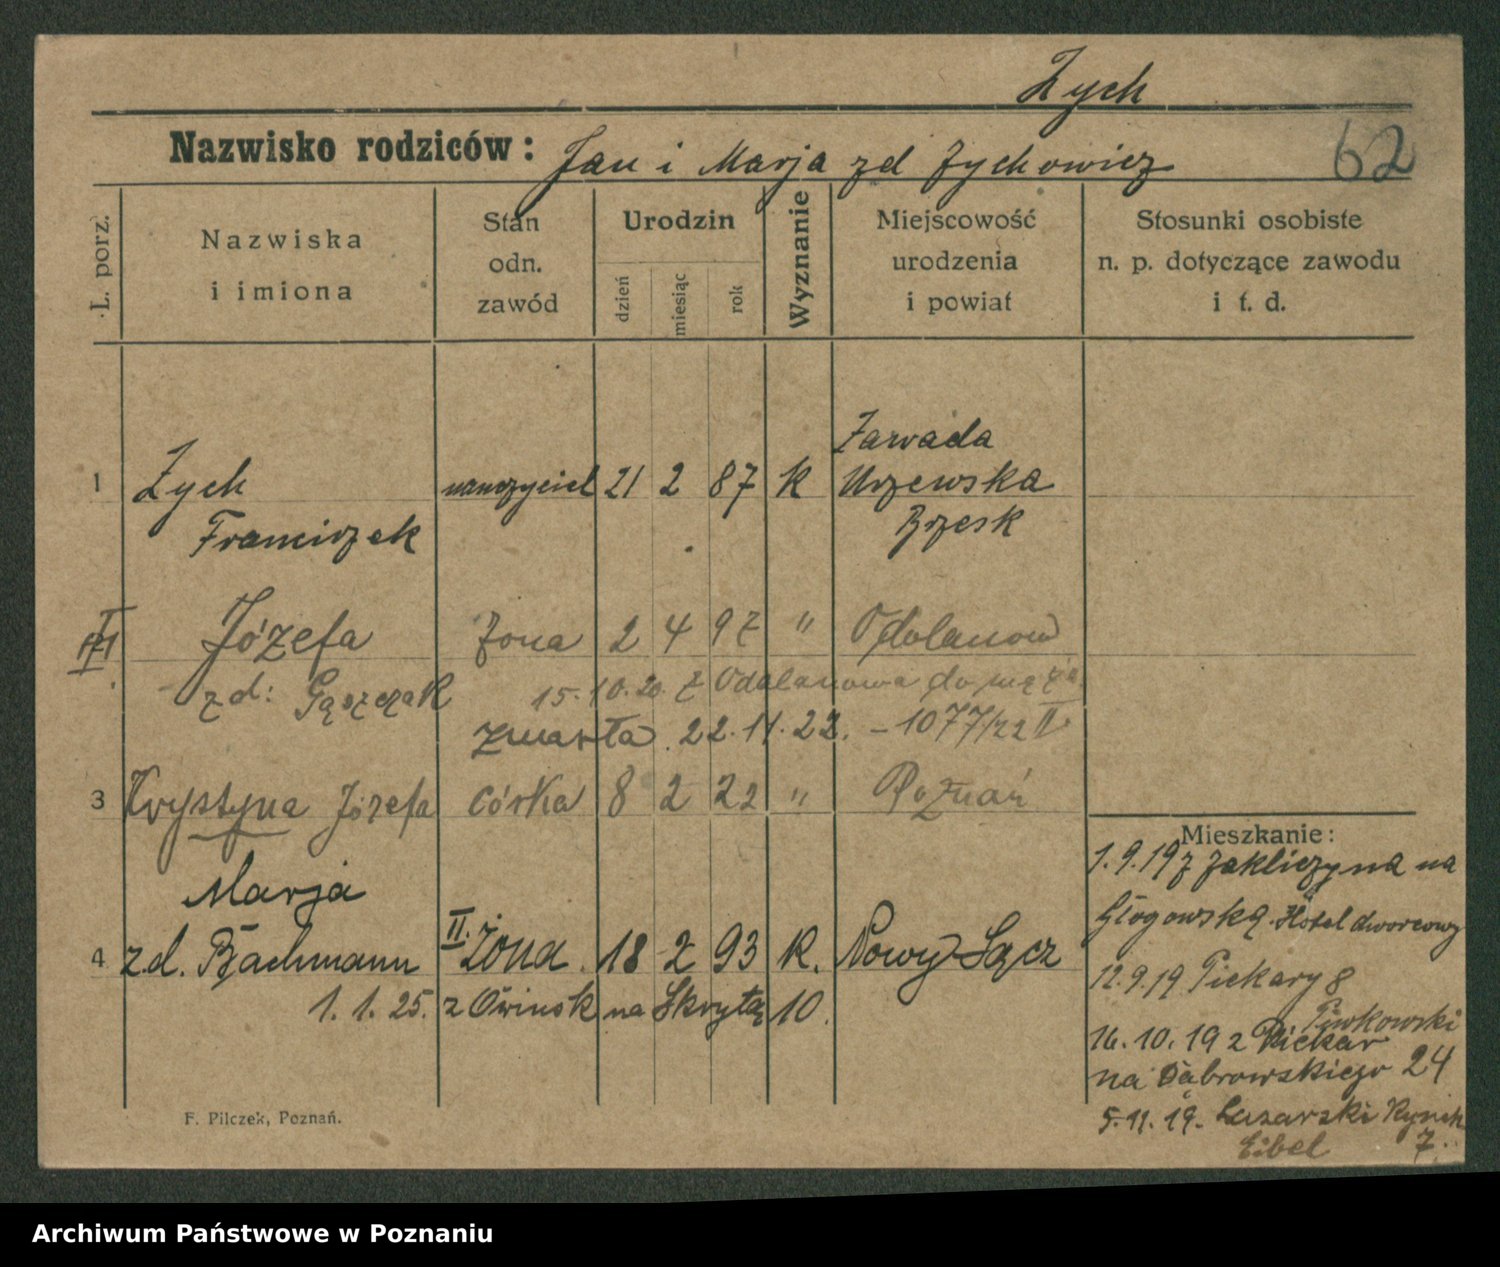 Zych
Nazwisko rodziców: Jan i Marja zd Zychowicz
62
L. porz.
Nazwiska i imiona
Stan odn. zawód
Urodzin
dzień
miesiąc
rok
Wyznanie
Miejscowość urodzenia i powiat
Stosunki osobiste n. p. dotyczące zawodu i t. d.
Zawada
1 Zych nauczyciel 21 2 87 k Uszewska
Franciszek Brzesk
I Józefa żona 2 4 97 " Odolanow
zd: Gąszczak 15.10.20. z Odolanowa do męża
zmarła 22.11.22. - 1077/22 II
3 Krystyna Józefa córka 8 2 22 " Poznań
Marja
4 zd. Bachmann II. żona 18 2 93 k. Nowy Sącz
1. 1. 25. z Owinsk na Skrytą 10.
Mieszkanie:
1.9.19 z Zakliczyna na
Głogowską Hotel dworcowy
12.9.19 Piekary 8
Piwkowski
16.10.19 z Piekar
na Dąbrowskiego 24
5.11.19. Łazarski Rynek
Eibel 7.
F. Pilczek, Poznań.
Archiwum Państwowe w Poznaniu